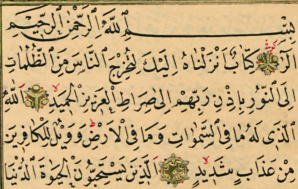 بِسْمِ اللَّهِ الرَّحْمٰنِ الرَّحِيمِ
الٓرٰ كِتَابٌ اَنْزَلْنَاهُ اِلَيْكَ لِتُخْرِجَ النَّاسَ مِنَ الظُّلُمَاتِ
اِلَى النُّورِ بِاِذْنِ رَبِّهِمْ اِلٰى صِرَاطِ الْعَزِيزِ الْحَمِيدِ اَللَّهِ
الَّذِى لَهُ مَا فِى السَّمٰوَاتِ وَمَا فِى الْاَرْضِ وَوَيْلٌ لِلْكَافِرِينَ
مِنْ عَذَابٍ شَدِيدٍ اَلَّذِينَ يَسْتَحِبُّونَ الْحَيٰوةَ الدُّنْيَا